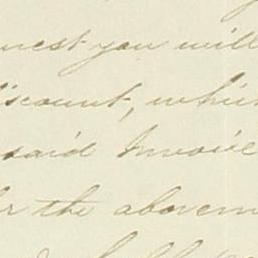 you will
iscount, whi
said Invoice
the abovem